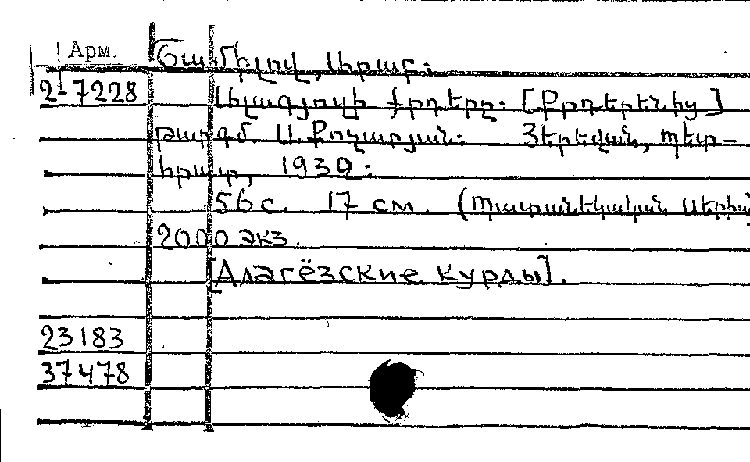 Арм.
Շամիլով, Արաբ.
2-7228
Ալագյոզի քրդերը. [Քրդերենից]
թարգմ. Ա. Քոչարյան. Յերեվան, պետ-
հրատ, 1932.
56 с. 17 см. (Պատանեկական սերիա
2000 экз.
[Алагёзские курды].
23183
37478